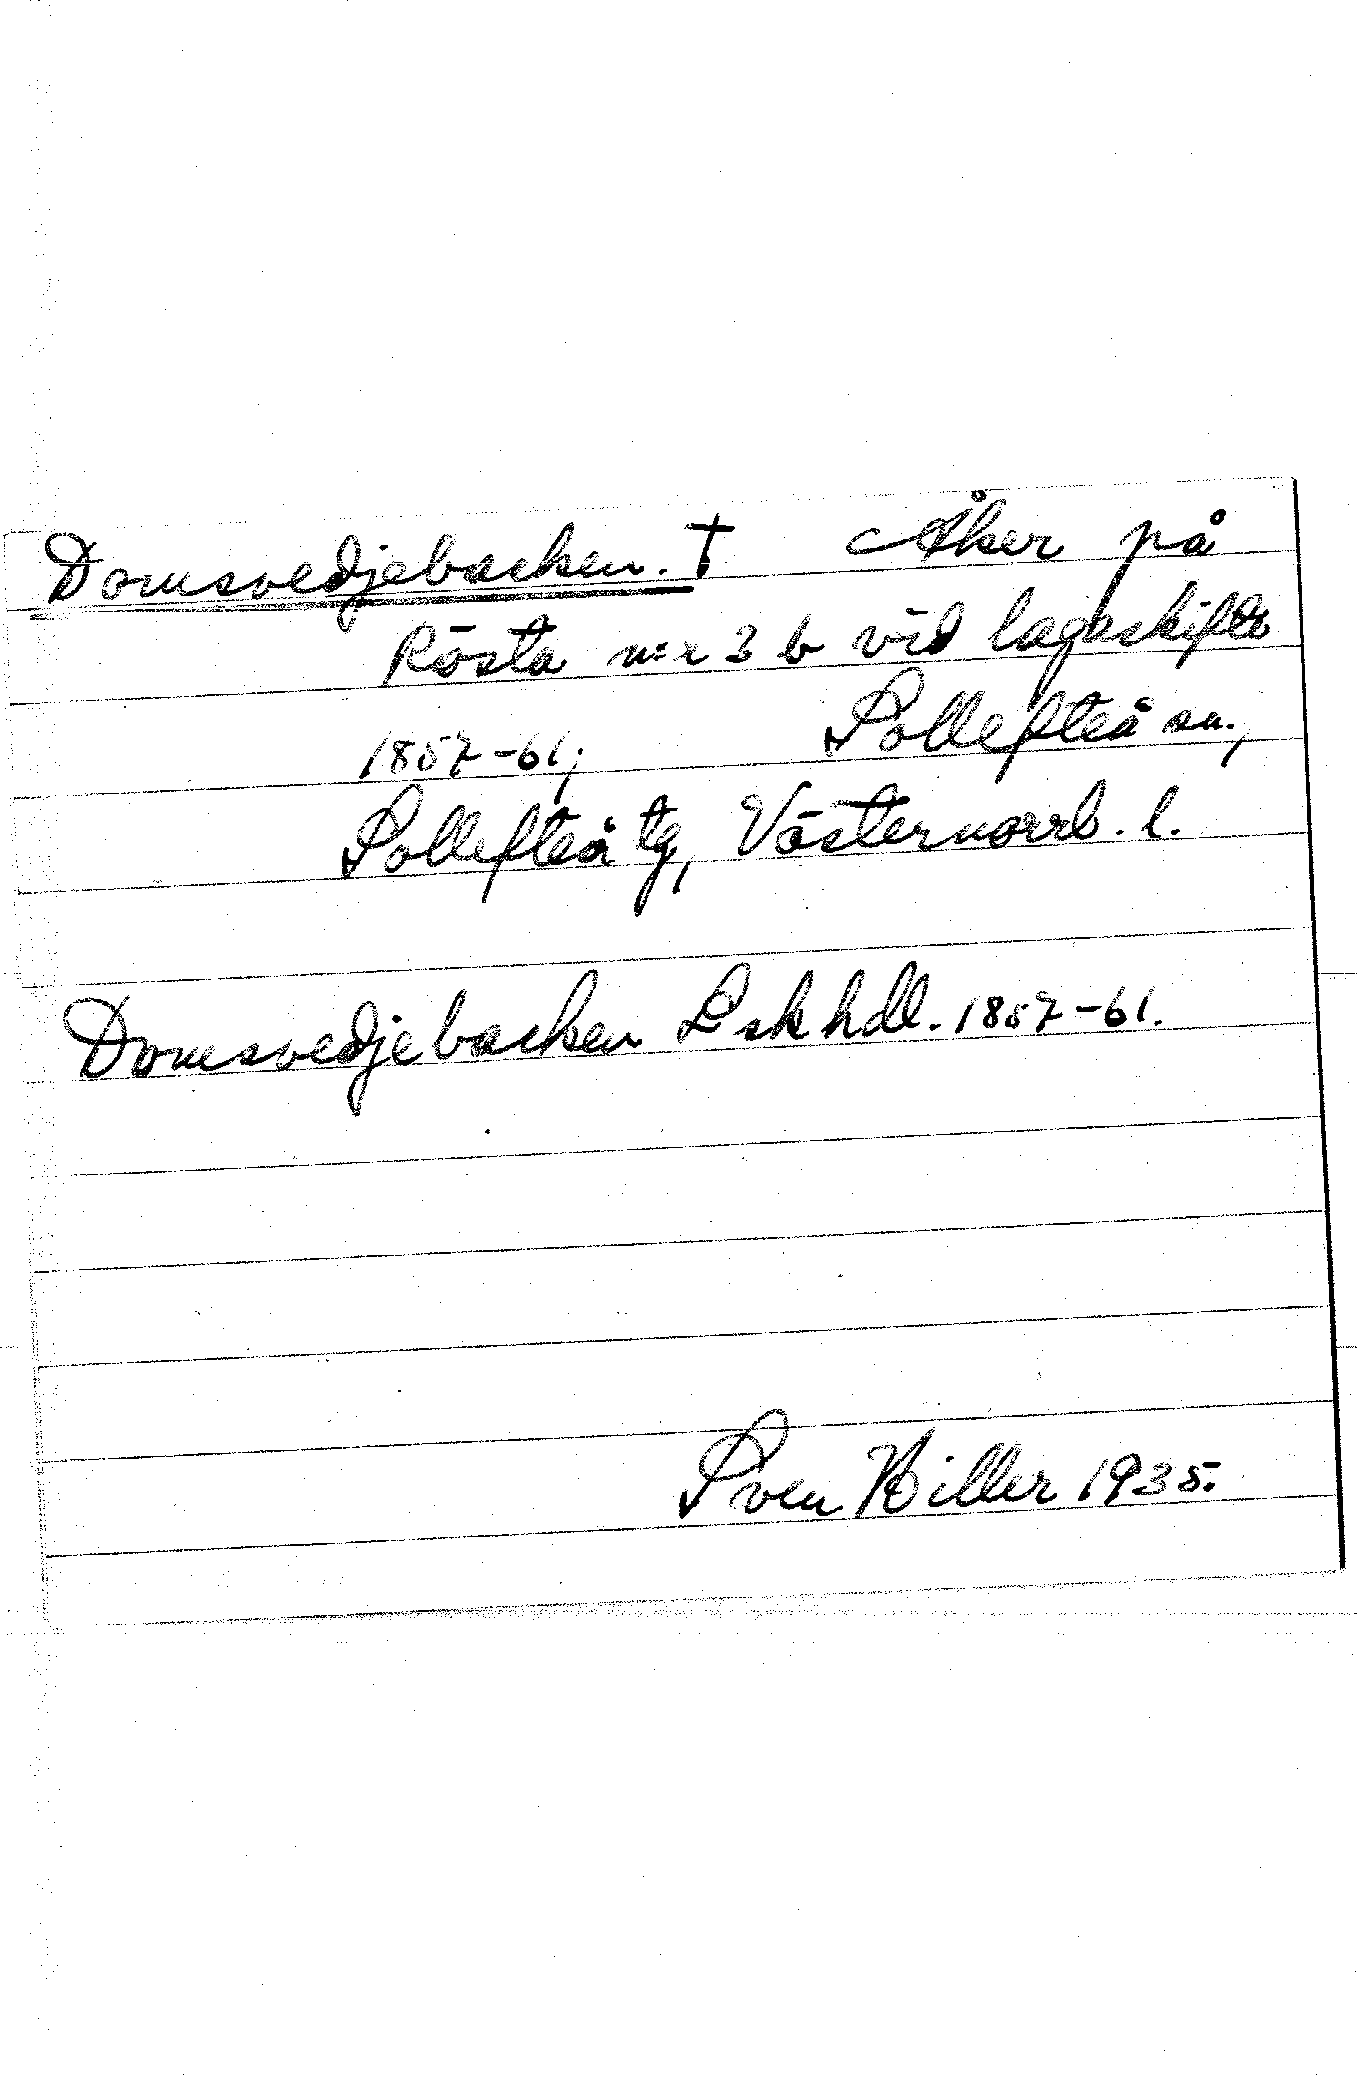 Domsvedjebacken. † Åker på
Rösta n:r 3 b vid lagaskifte
1857-61; Sollefteå sn.,
Sollefteå tg, Västernorrl. l.
Domsvedjebacken Lskhdl. 1857-61.
Sven Hiller 1935.